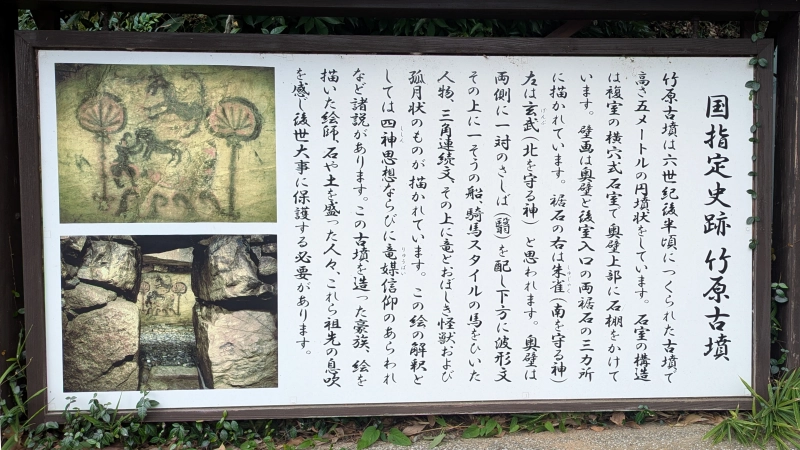 国指定史跡 竹原古墳
竹原古墳は六世紀後半頃につくられた古墳で
高さ五メートルの円墳状をしています。石室の構造
は複室の横穴式石室で奥壁上部に石棚をかけて
います。壁画は奥壁と後室入口の両裾石の三カ所
に描かれています。裾石の右は朱雀(南を守る神)
左は玄武(北を守る神)と思われます。奥壁は
両側に一対のさしば(翳)を配し下方に波形文
その上に一そうの船、騎馬スタイルの馬をひいた
人物、三角連続文、その上に竜とおぼしき怪獣および
弧月状のものが描かれています。この絵の解釈と
しては四神思想ならびに竜媒信仰のあらわれ
など諸説があります。この古墳を造った豪族、絵を
描いた絵師、石や土を盛った人々、これら祖先の息吹
を感じ後世大事に保護する必要があります。